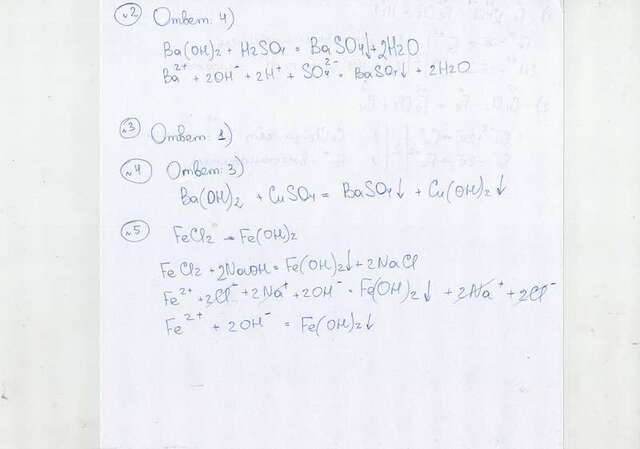 №2 Ответ: 4)
Ba(OH)₂ + H₂SO₄ = BaSO₄↓ + 2H₂O
Ba²⁺ + 2OH⁻ + 2H⁺ + SO₄²⁻ = BaSO₄↓ + 2H₂O
№3 Ответ: 1)
№4 Ответ: 3)
Ba(OH)₂ + CuSO₄ = BaSO₄↓ + Cu(OH)₂↓
№5 FeCl₂ → Fe(OH)₂
FeCl₂ + 2NaOH = Fe(OH)₂↓ + 2NaCl
Fe²⁺ + 2Cl⁻ + 2Na⁺ + 2OH⁻ = Fe(OH)₂↓ + 2Na⁺ + 2Cl⁻
Fe²⁺ + 2OH⁻ = Fe(OH)₂↓